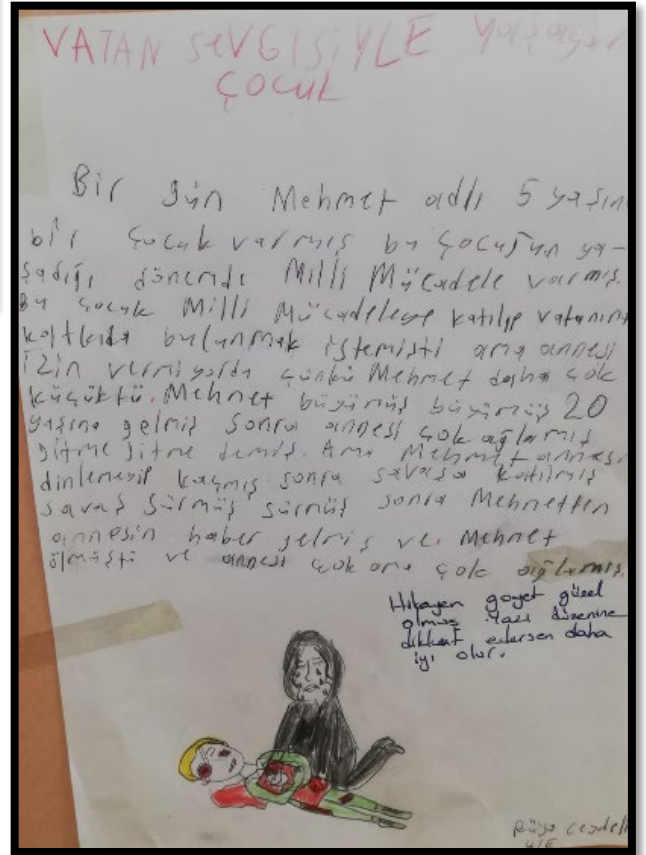 VATAN SEVGİSİYLE yaşayan
ÇOCUK
Bir gün Mehmet adlı 5 yaşın
bir çocuk varmış bu çocuğun ya-
şadığı dönemde Milli Mücadele varmış.
Bu çocuk Milli Mücadeleye katılıp vatanına
katkıda bulunmak istemişti ama annesi
izin vermiyordu çünkü Mehmet daha çok
küçüktü. Mehmet büyümüş büyümüş 20
yaşına gelmiş sonra annesi çok ağlamış
gitme gitme demiş. Ama Mehmet annesi
dinlemeyip kaçmış sonra savaşa katılmış
savaş sürmüş sürmüş sonra Mehmetten
annesin haber gelmiş ve. Mehmet
ölmüştü ve annesi çok ama çok ağlamış.
Hikayen gayet güzel
olmuş. Yazı düzenine
dikkat edersen daha
iyi olur.
Rüya
4/E